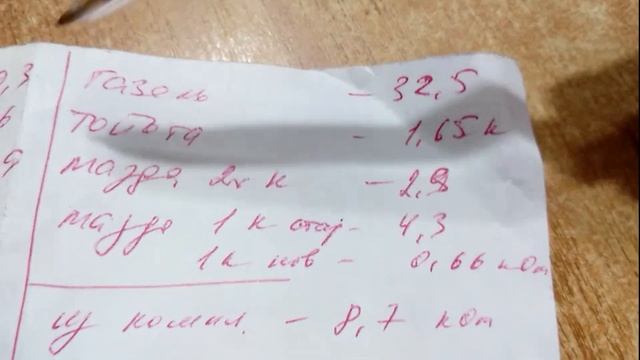 газель - 32,5
тойота - 1,65 к
мазда 2х к - 2,8
мазда 1 к стар - 4,3
1 к нов - 0,66 ком
- 8,7 ком